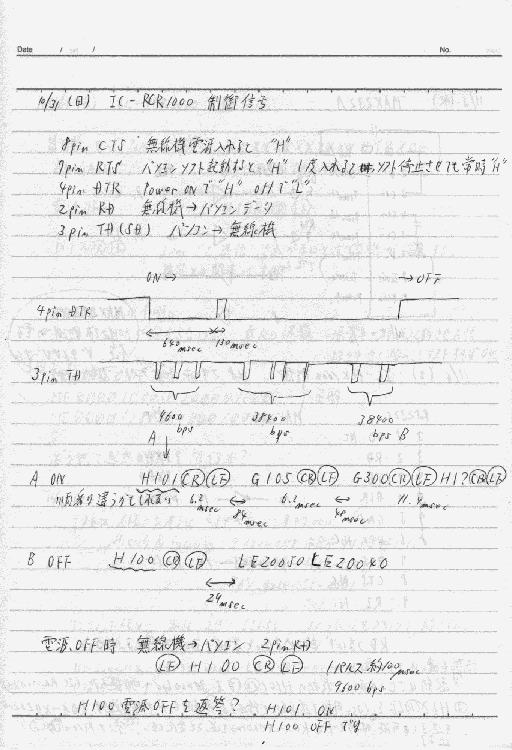 Date / /
No.
10/31 (日) IC-RCR1000 制御信号
8pin CTS 無線機電源入れると "H"
7pin RTS パソコンソフト起動すると "H" 1度入れると ソフト停止させても常時 "H"
4pin DTR Power ONで "H" OFFで "L"
2pin RD 無線機→パソコン データ
3pin TD(SD) パソコン→無線機
ON→ →OFF
4pin DTR
640msec 130msec
3pin TD
9600bps 38400bps 38400bps B
A
A ON H101 CR LF G105 CR LF G300 CR LF H1? CR LF
順番が違うかもしれない 6.2msec 84msec 6.2msec 48msec 11.4msec
B OFF H100 CR LF LE20050 LE20040
24msec
電源OFF時 無線機→パソコン 2pin RD
LF H100 CR LF 1パルス約100μsec
9600bps
H100 電源OFFを返答? H101 ON
H100 OFF です